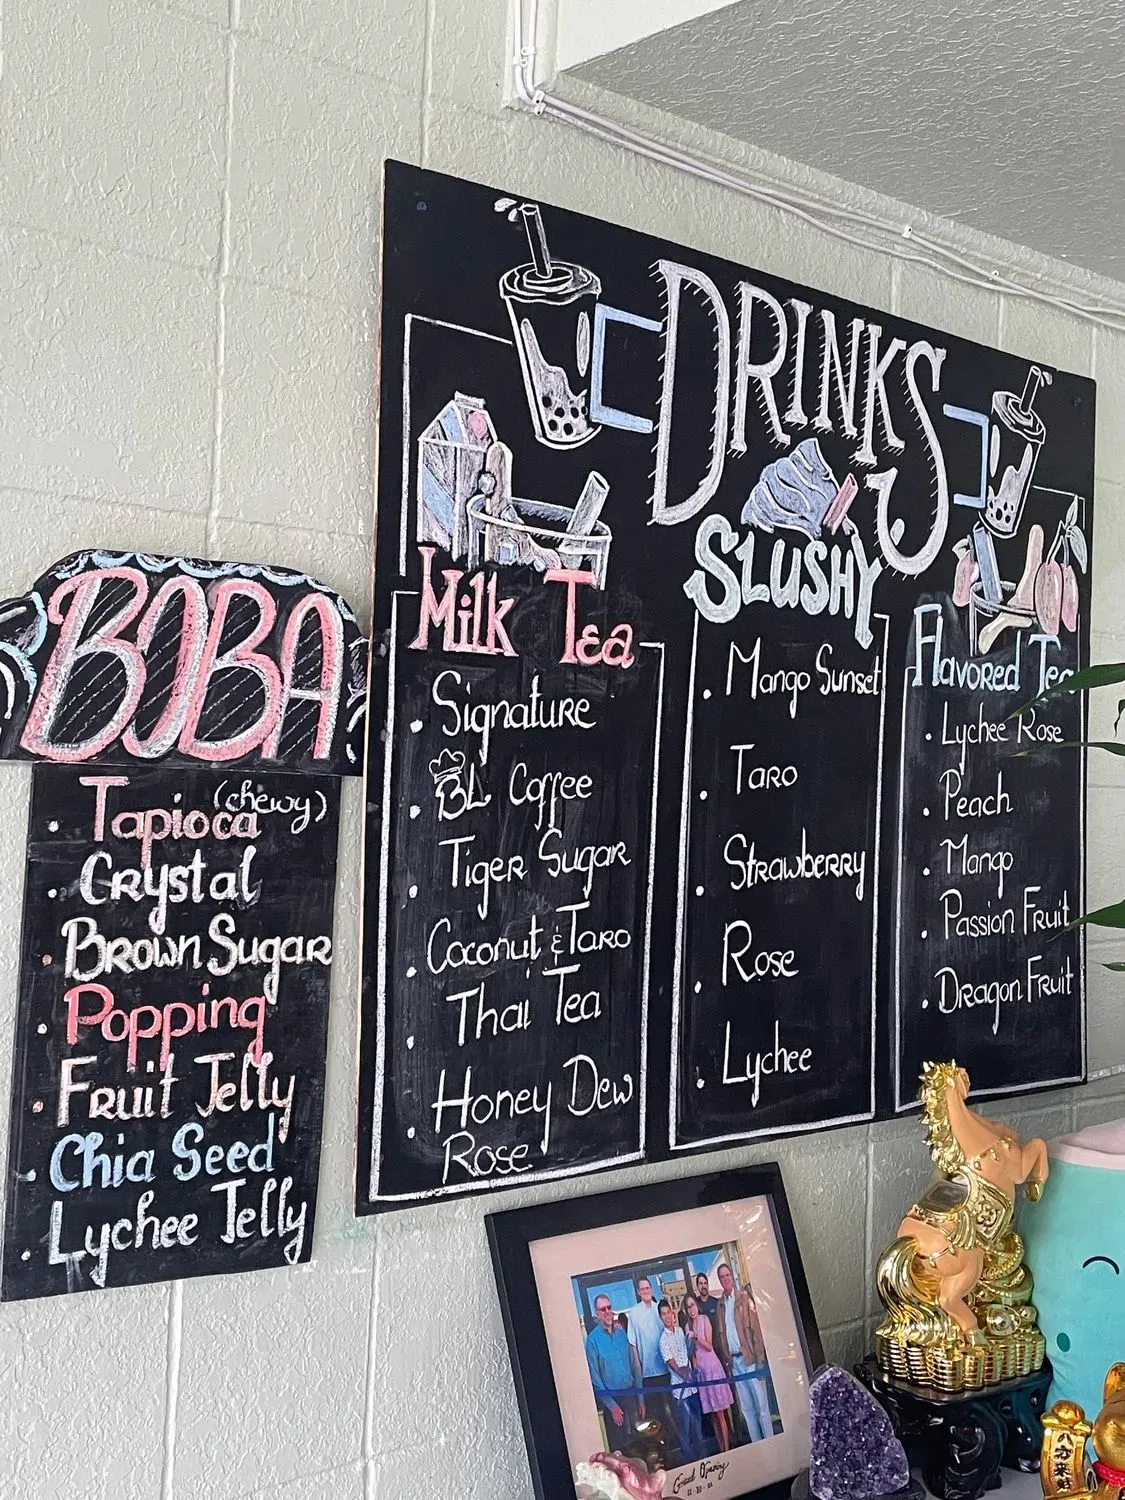 DRINKS
Milk Tea
Signature
BL Coffee
Tiger Sugar
Coconut & Taro
Thai Tea
Honey Dew
Rose
SLUSHY
Mango Sunset
Taro
Strawberry
Rose
Lychee
Flavored Tea
Lychee Rose
Peach
Mango
Passion Fruit
Dragon Fruit
BOBA
Tapioca (chewy)
Crystal
Brown Sugar
Popping
Fruit Jelly
Chia Seed
Lychee Jelly
Grand Opening